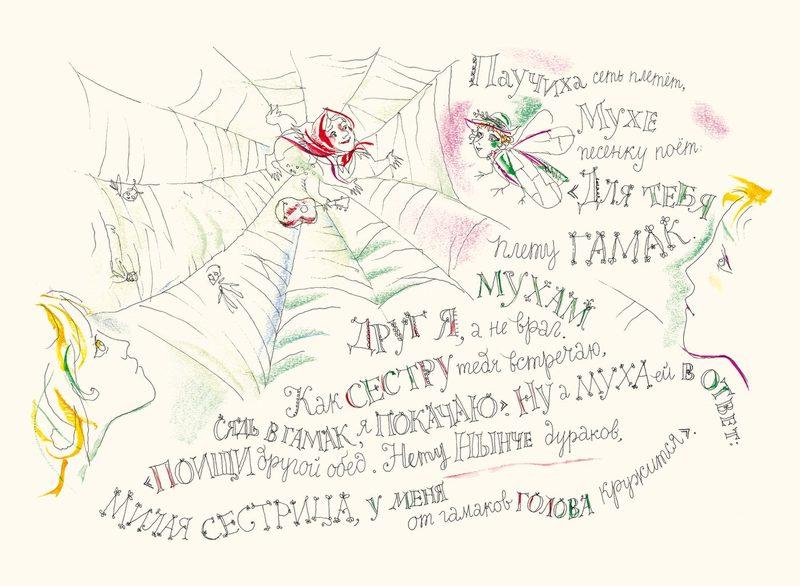 Паучиха сеть плетёт,
МУХЕ
песенку поёт:
«Для ТЕБЯ
плету ГАМАК.
МУХАМ
ДРУГ Я, а не враг.
Как СЕСТРУ тебя встречаю,
СЯДЬ В ГАМАК, я ПОКАЧАЮ». НУ а МУХА ей В ОТВЕТ:
«ПОИЩИ другой обед. Нету НЫНЧЕ дураков,
МИЛАЯ СЕСТРИЦА, У МЕНЯ
от гамаков ГОЛОВА кружится».